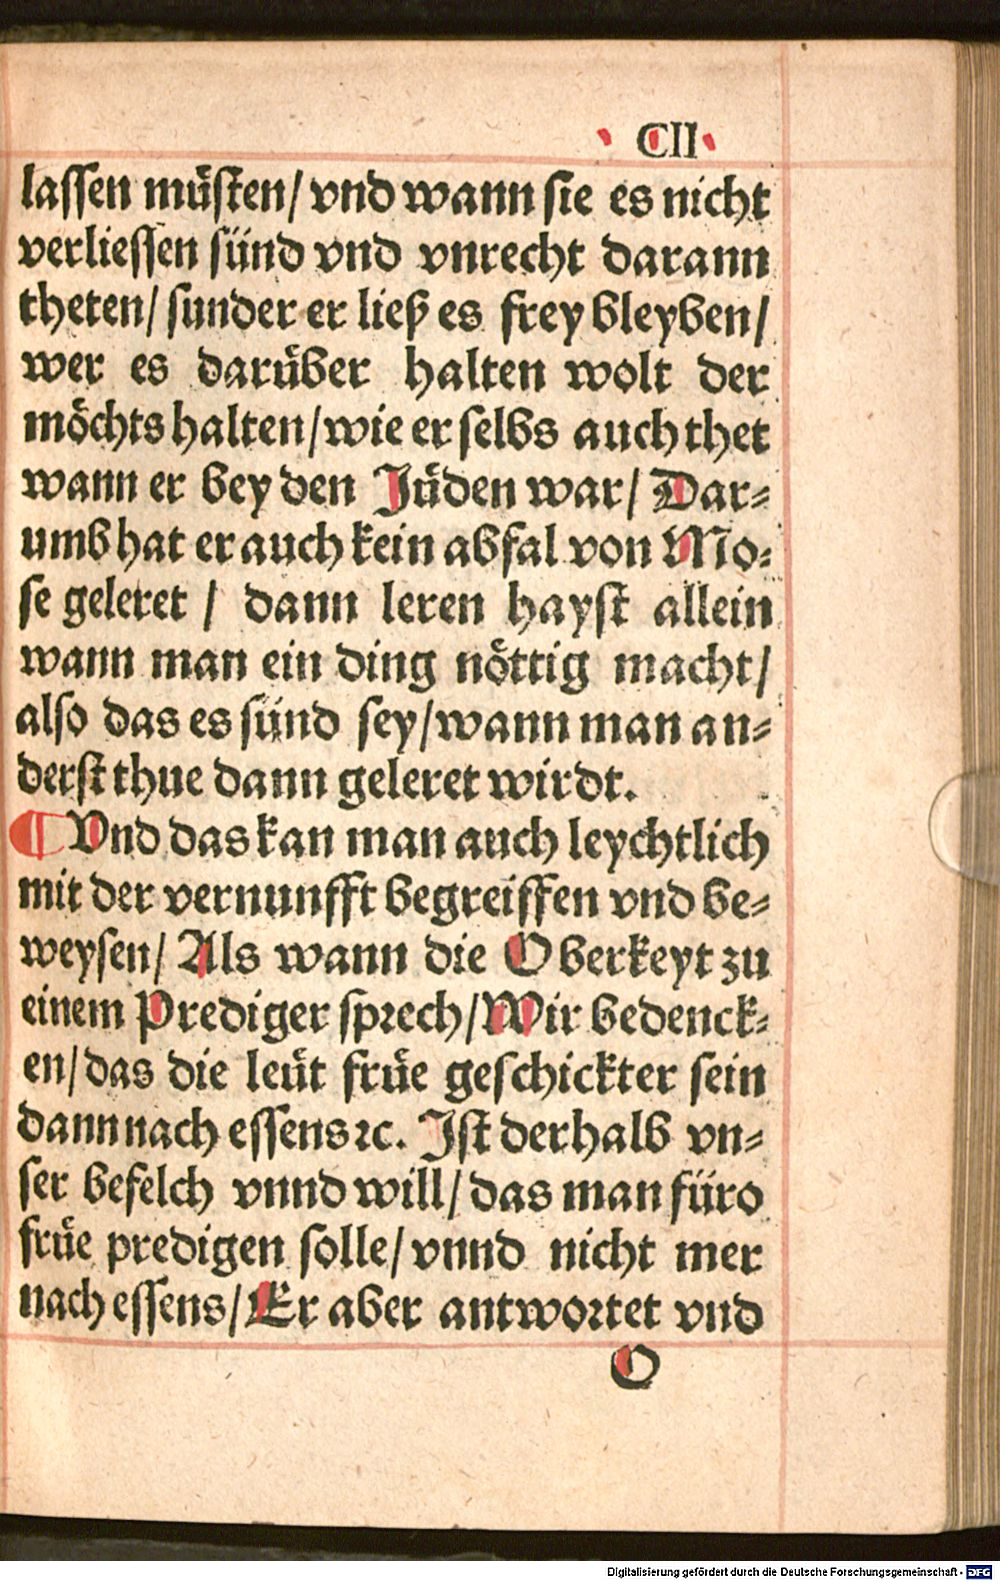 CII
lassen müsten/ vnd wann sie es nicht
verliessen sünd vnd vnrecht darann
theten/ sunder er ließ es frey bleyben/
wer es darüber halten wolt der
möchts halten/ wie er selbs auch thet
wann er bey den Jüden war/ Dar⸗
umb hat er auch kein abfal von Mo⸗
se geleret / dann leren hayst allein
wann man ein ding nöttig macht/
also das es sünd sey/ wann man an⸗
derst thue dann geleret wirdt.
¶ Vnd das kan man auch leychtlich
mit der vernunfft begreiffen vnd be⸗
weysen/ Als wann die Oberkeyt zu
einem Prediger sprech/ Wir bedenck⸗
en/ das die leüt früe geschickter sein
dann nach essens ꝛc. Ist derhalb vn⸗
ser befelch vnnd will/ das man füro
früe predigen solle/ vnnd nicht mer
nach essens/ Er aber antwortet vnd
O
Digitalisierung gefördert durch die Deutsche Forschungsgemeinschaft - DFG